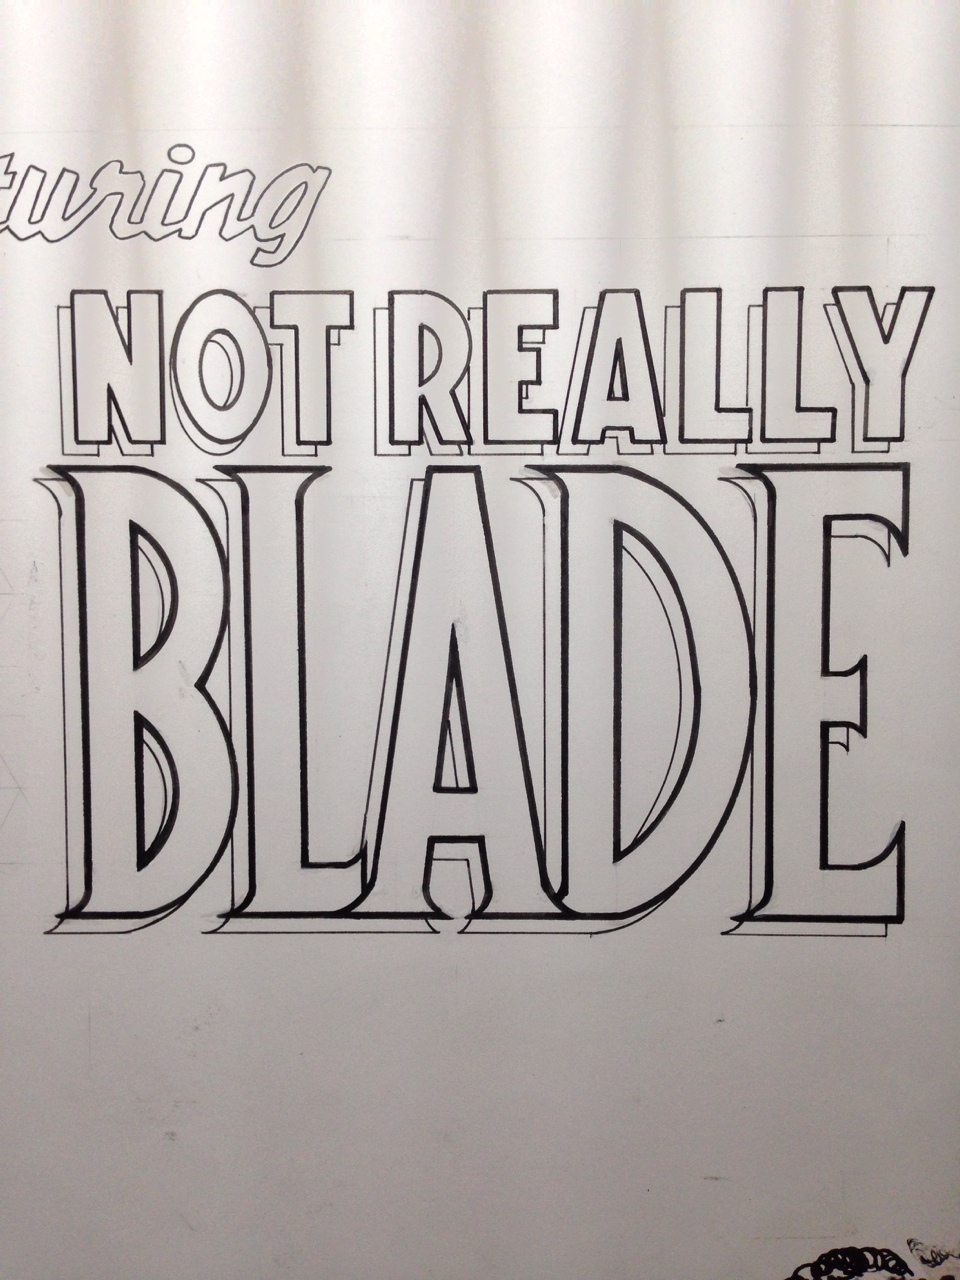 turing
NOT REALLY
BLADE